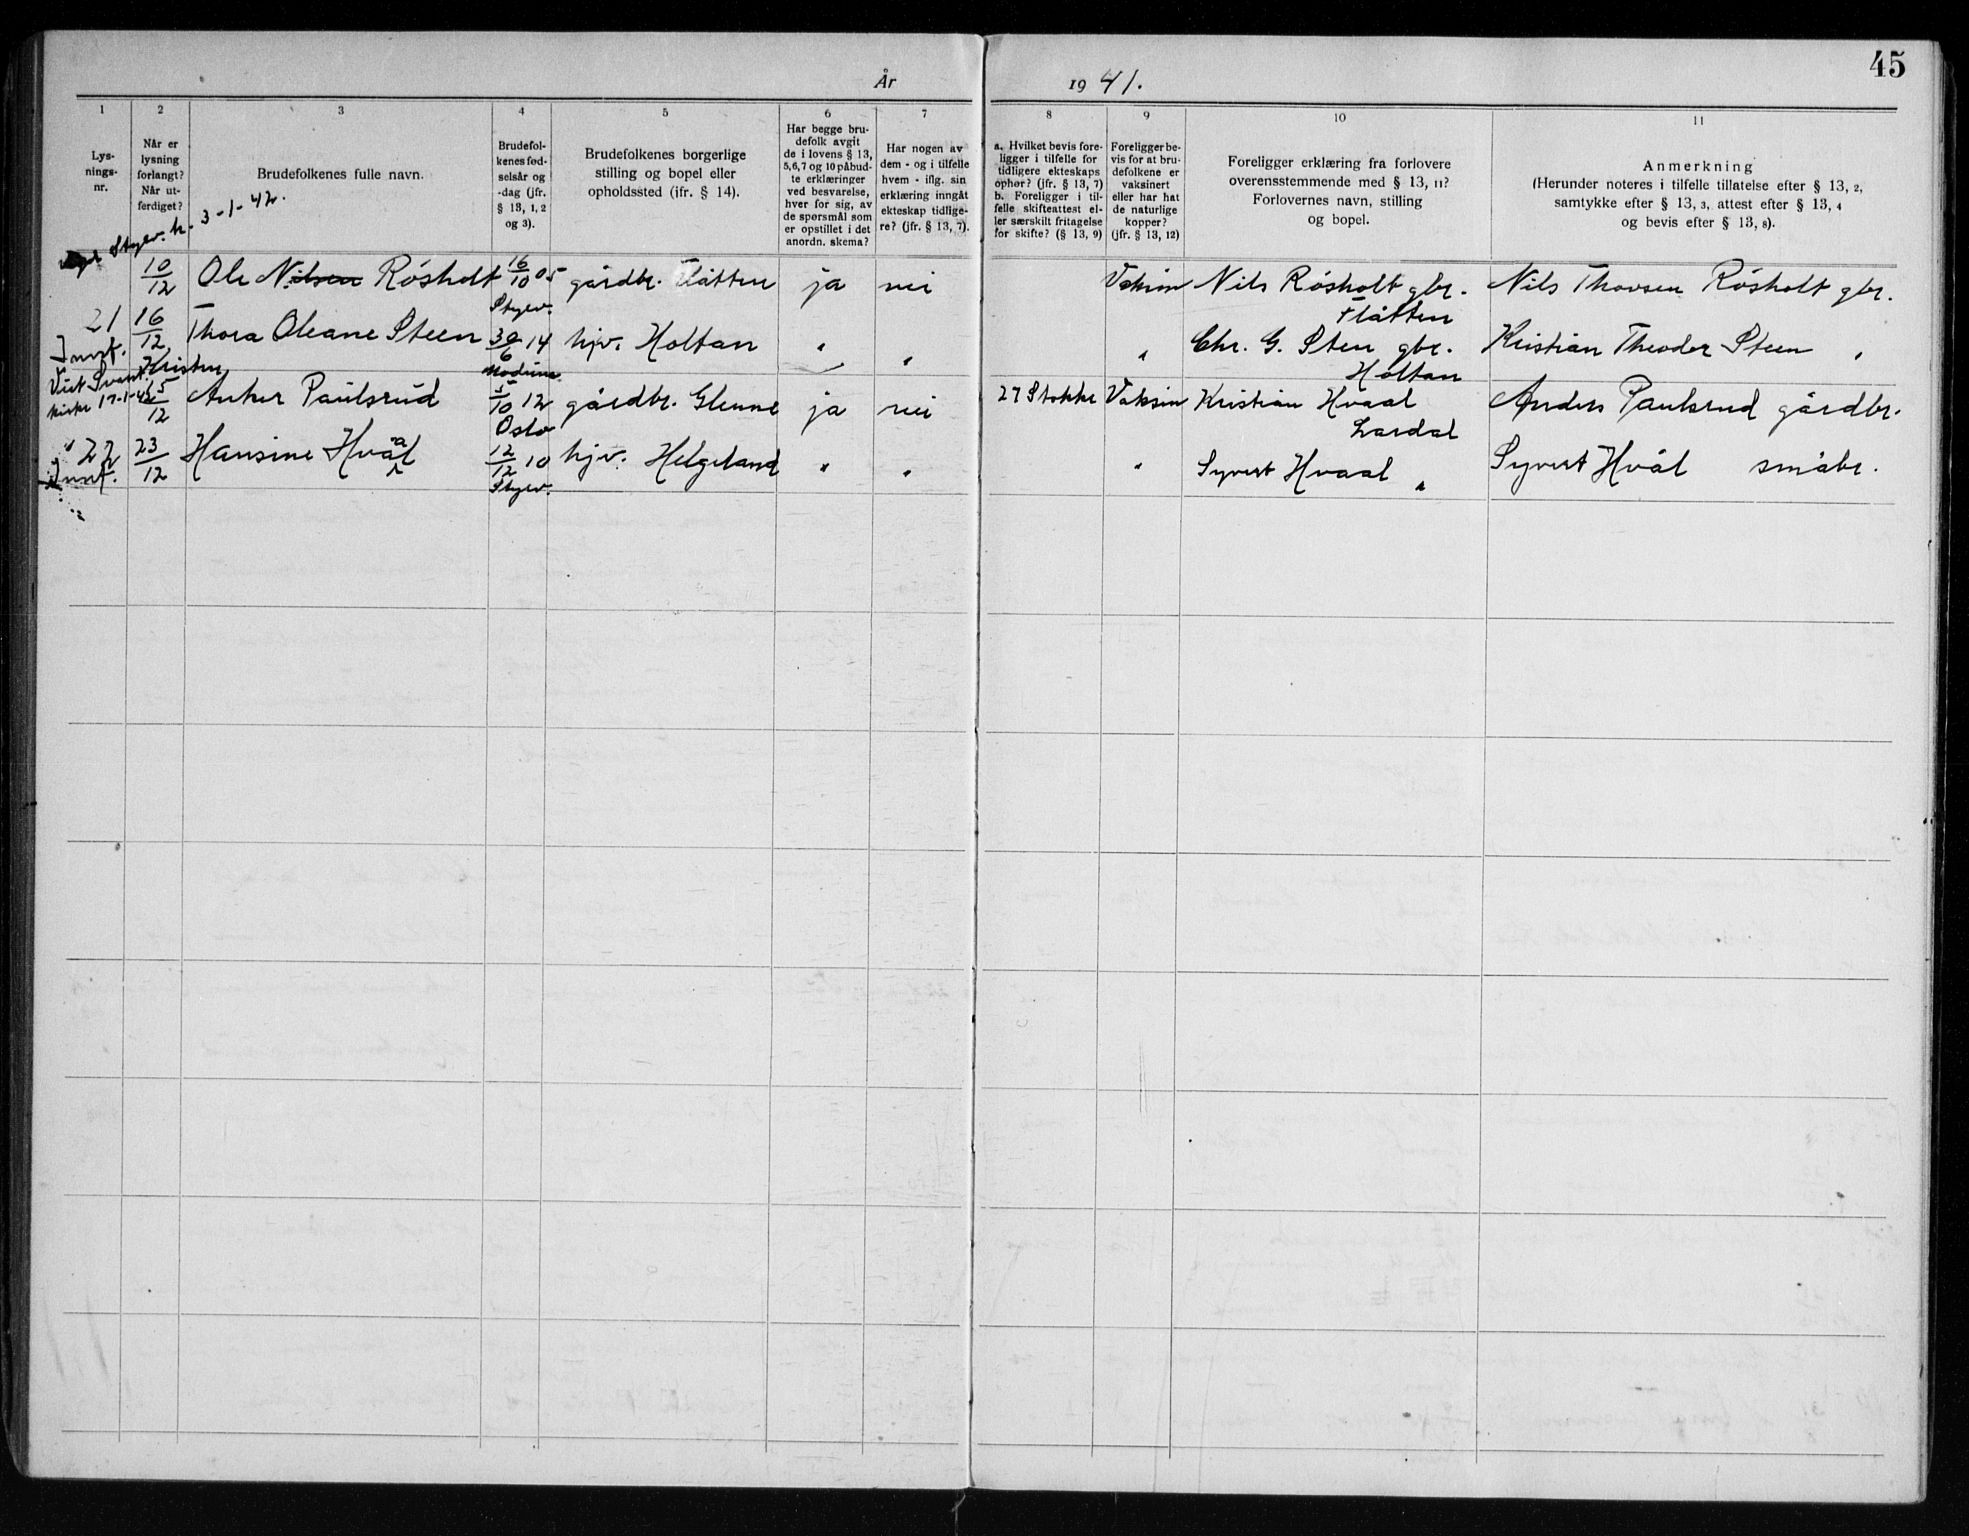 45
År 1941.
1
2
3
4
5
6
7
8
9
10
11
Lys-
nings-
nr.
Når er
lysning
forlangt?
Når ut-
ferdiget?
Brudefolkenes fulle navn.
Brudefol-
kenes fød-
selsår og
-dag (jfr.
§ 13, 1, 2
og 3).
Brudefolkenes borgerlige
stilling og bopel eller
opholdssted (ifr. § 14).
Har begge bru-
defolk avgit
de i lovens § 13,
5,6,7 og 10 påbud-
te erklæringer
ved besvarelse,
hver for sig, av
de spørsmål som
er opstillet i det
anordn. skema?
Har nogen av
dem - og i tilfelle
hvem - iflg. sin
erklæring inngåt
ekteskap tidlige-
re? (jfr. § 13, 7).
a. Hvilket bevis fore-
ligger i tilfelle for
tidligere ekteskaps
ophør? (jfr. § 13, 7)
b. Foreligger i til-
felle skifteattest el-
ler særskilt fritagelse
for skifte? (§ 13, 9)
Foreligger be-
vis for at bru-
defolkene er
vaksinert
eller har hat
de naturlige
kopper?
(jfr. § 13, 12)
Foreligger erklæring fra forlovere
overensstemmende med § 13, 11?
Forlovernes navn, stilling
og bopel.
Anmerkning
(Herunder noteres i tilfelle tillatelse efter § 13, 2,
samtykke efter § 13, 3, attest efter § 13, 4
og bevis efter § 13, 8).
Styrv. k. 3-1-42.
10/12 Ole Nilsen Røsholt 16/10 05 gårdbr. Flåtten ja nei Vaksin Nils Røsholt gbr. Nils Thovsen Røsholt gbr.
Styrv. Flåtten
21 16/12 Thora Oleane Steen 30/6 14 hjv. Holtan " " " Chr. G. Sten gbr. Kristian Theodor Steen "
Innf. Kristen Modum Holtan
Viet Svarst.
kirke 17-1-42 15/12 Anker Paulsrud 5/10 12 gårdbr. Glenne ja nei 27 Stokke Vaksin Kristian Hvaal Anders Paulsrud gårdbr.
Oslo Lardal
" 22 23/12 Hansine Hvål a 12/12 10 hjv. Helgeland " " " Syvert Hvaal " Syvert Hvål småbr.
Innf. Styrv.